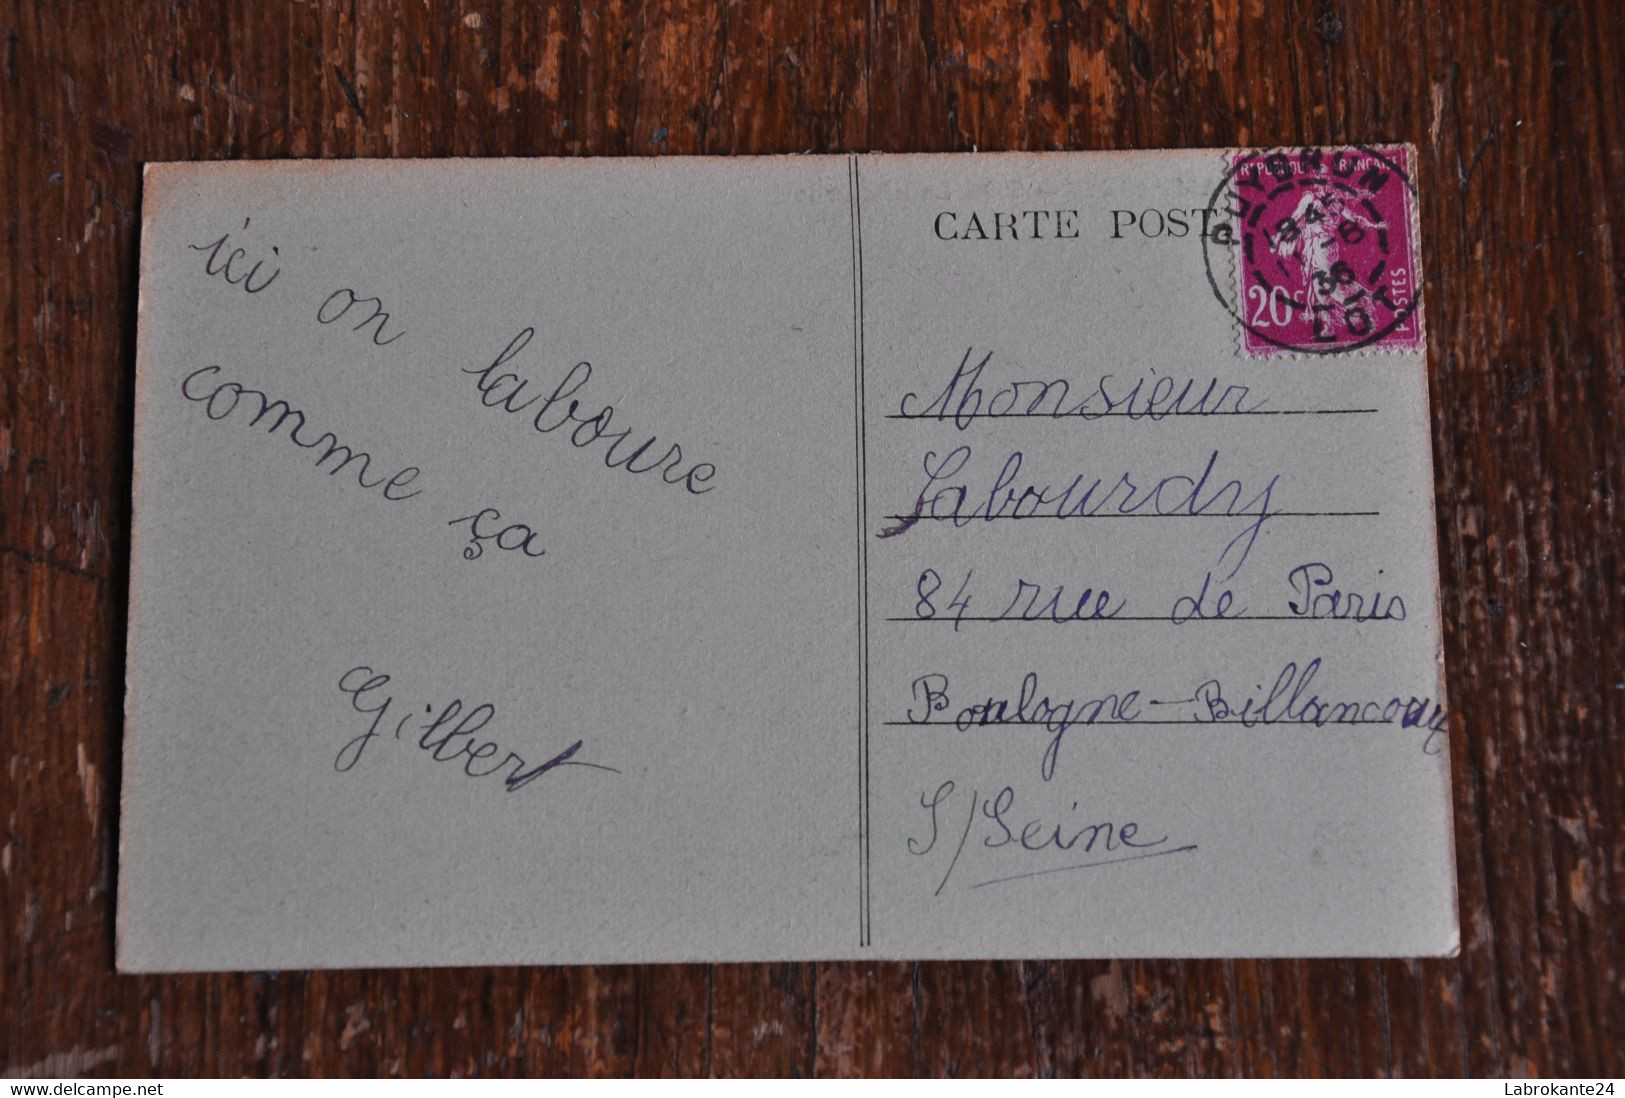 ici on laboure
comme ça
Gilbert
CARTE POST
REPUBLIQUE FRANCAISE
20c
POSTES
PUYBRUN
LOT
36
Monsieur
Labourdy
84 rue de Paris
Boulogne-Billancourt
S/Seine
www.delcampe.net
Labrokante24